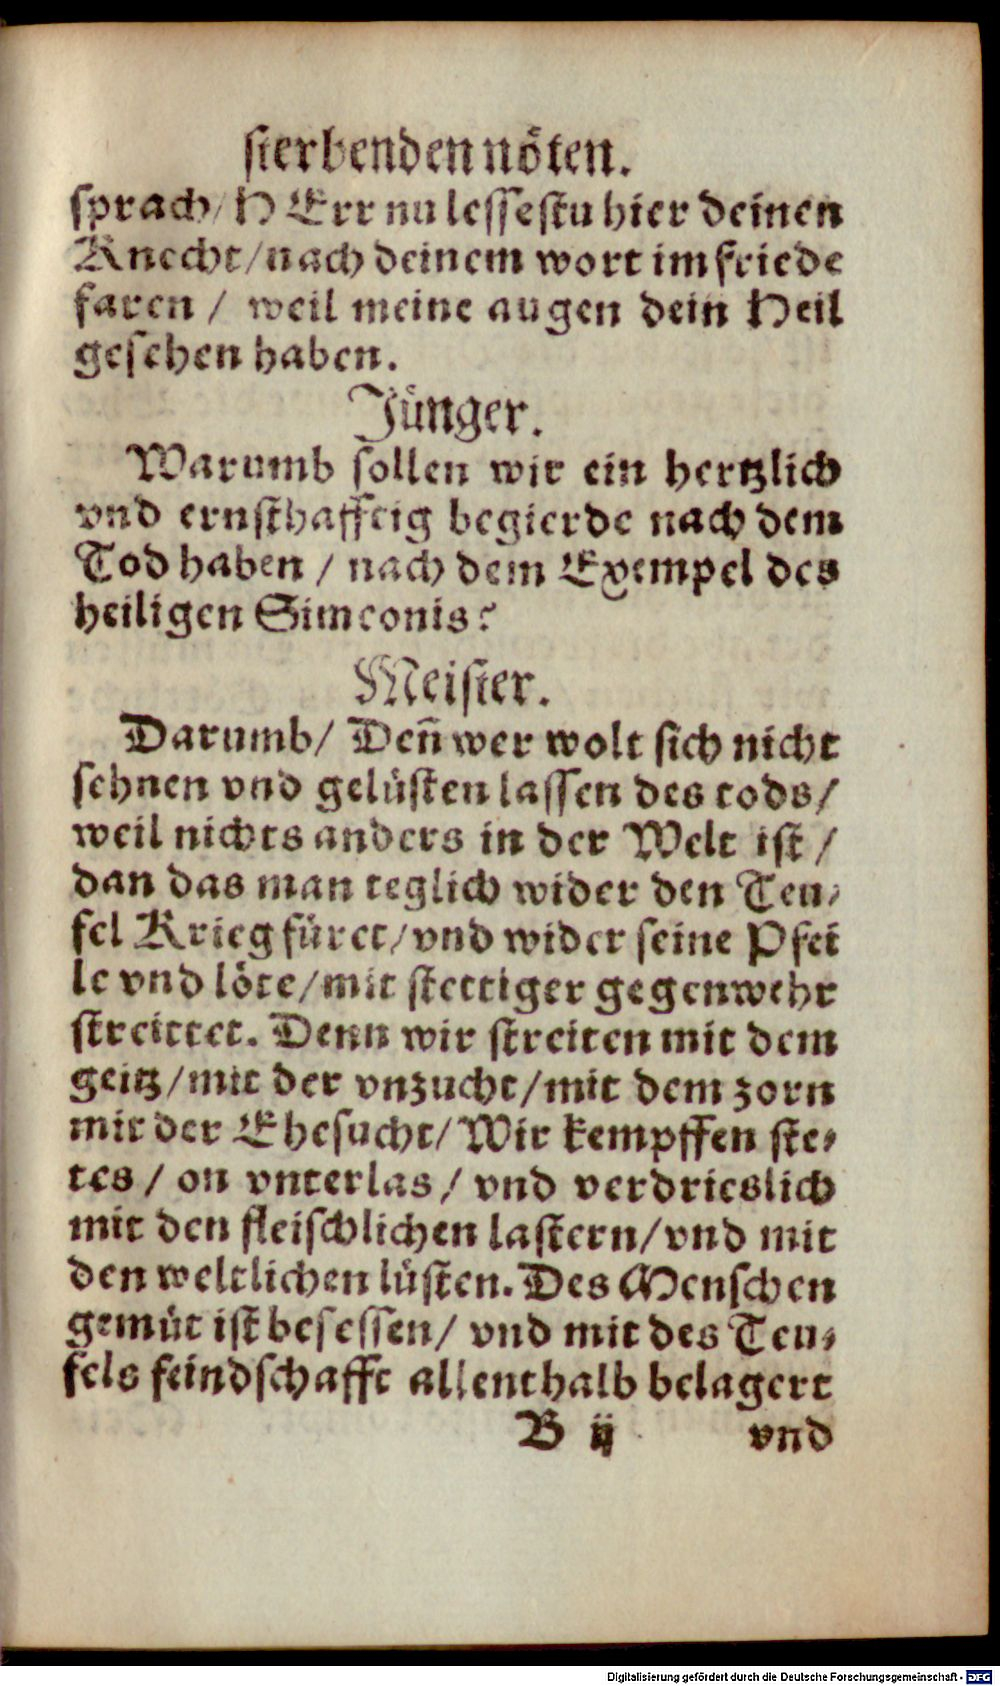 sterbenden nöten.
sprach/ HErr nu lessestu hier deinen
Knecht/nach deinem wort im friede
faren / weil meine augen dein Heil
gesehen haben.
Jünger.
Warumb sollen wir ein hertzlich
vnd ernsthafftig begierde nach dem
Tod haben / nach dem Exempel des
heiligen Simeonis?
Meister.
Darumb/ Deñ wer wolt sich nicht
sehnen vnd gelüsten lassen des tods/
weil nichts anders in der Welt ist /
dan das man teglich wider den Teu-
fel Krieg füret/vnd wider seine Pfei
le vnd löte/mit stettiger gegenwehr
streittet. Denn wir streiten mit dem
geitz/mit der vnzucht/mit dem zorn
mit der Ehesucht/Wir kempffen ste-
tes / on vnterlas / vnd verdrieslich
mit den fleischlichen lastern/vnd mit
den weltlichen lüsten. Des Menschen
gemüt ist besessen/ vnd mit des Teu-
fels feindschafft allenthalb belagert
B ij vnd
Digitalisierung gefördert durch die Deutsche Forschungsgemeinschaft - DFG